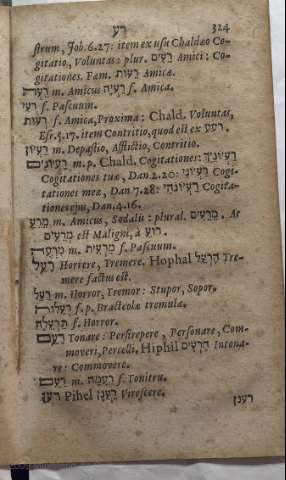 רע 324
strum, Job. 6.27: item ex usu Chaldæo Co-
gitatio, Voluntas: plur. רֵעִים Amici: Co-
gitationes. Fæm. רֵעוֹת Amicæ.
רֵעֶה m. Amicus רַעְיָה f. Amica.
רְעִי f. Pascuum.
רְעוּת f. Amica, Proxima: Chald. Voluntas,
Esr. 5.17. item Contritio, quod est ex רעע.
רַעְיוֹן m. Depastio, Afflictio, Contritio.
רַעְיוֹנִים m. p. Chald. Cogitationes: רַעְיוֹנָיךְ
Cogitationes tuæ, Dan. 2.20: רַעְיוֹנַי Cogi-
tationes meæ, Dan 7.28: רַעְיוֹנֹהִי Cogita-
tiones ejus, Dan. 4.16.
מֵרֵעַ m. Amicus, Sodalis: plural. מֵרֵעִים. At
מְרֵעִים est Maligni, à רוע.
מִרְעֶה m. מַרְעִית f. Pascuum.
רָעַל Horrere, Tremere. Hophal הָרְעַל Tre-
mere factus est.
רַעַל m. Horror, Tremor: Stupor, Sopor.
רְעָלוֹת f. p. Bracteolæ tremulæ.
תַּרְעֵלָה f. Horror.
רָעַם Tonare: Perstrepere, Personare, Com-
moveri, Percelli. Hiphil הִרְעִים Intona-
re: Commovere.
רַעַם m. רַעְמָה f. Tonitru.
רָעַן Pihel רַעֲנַן Virescere.
רענן